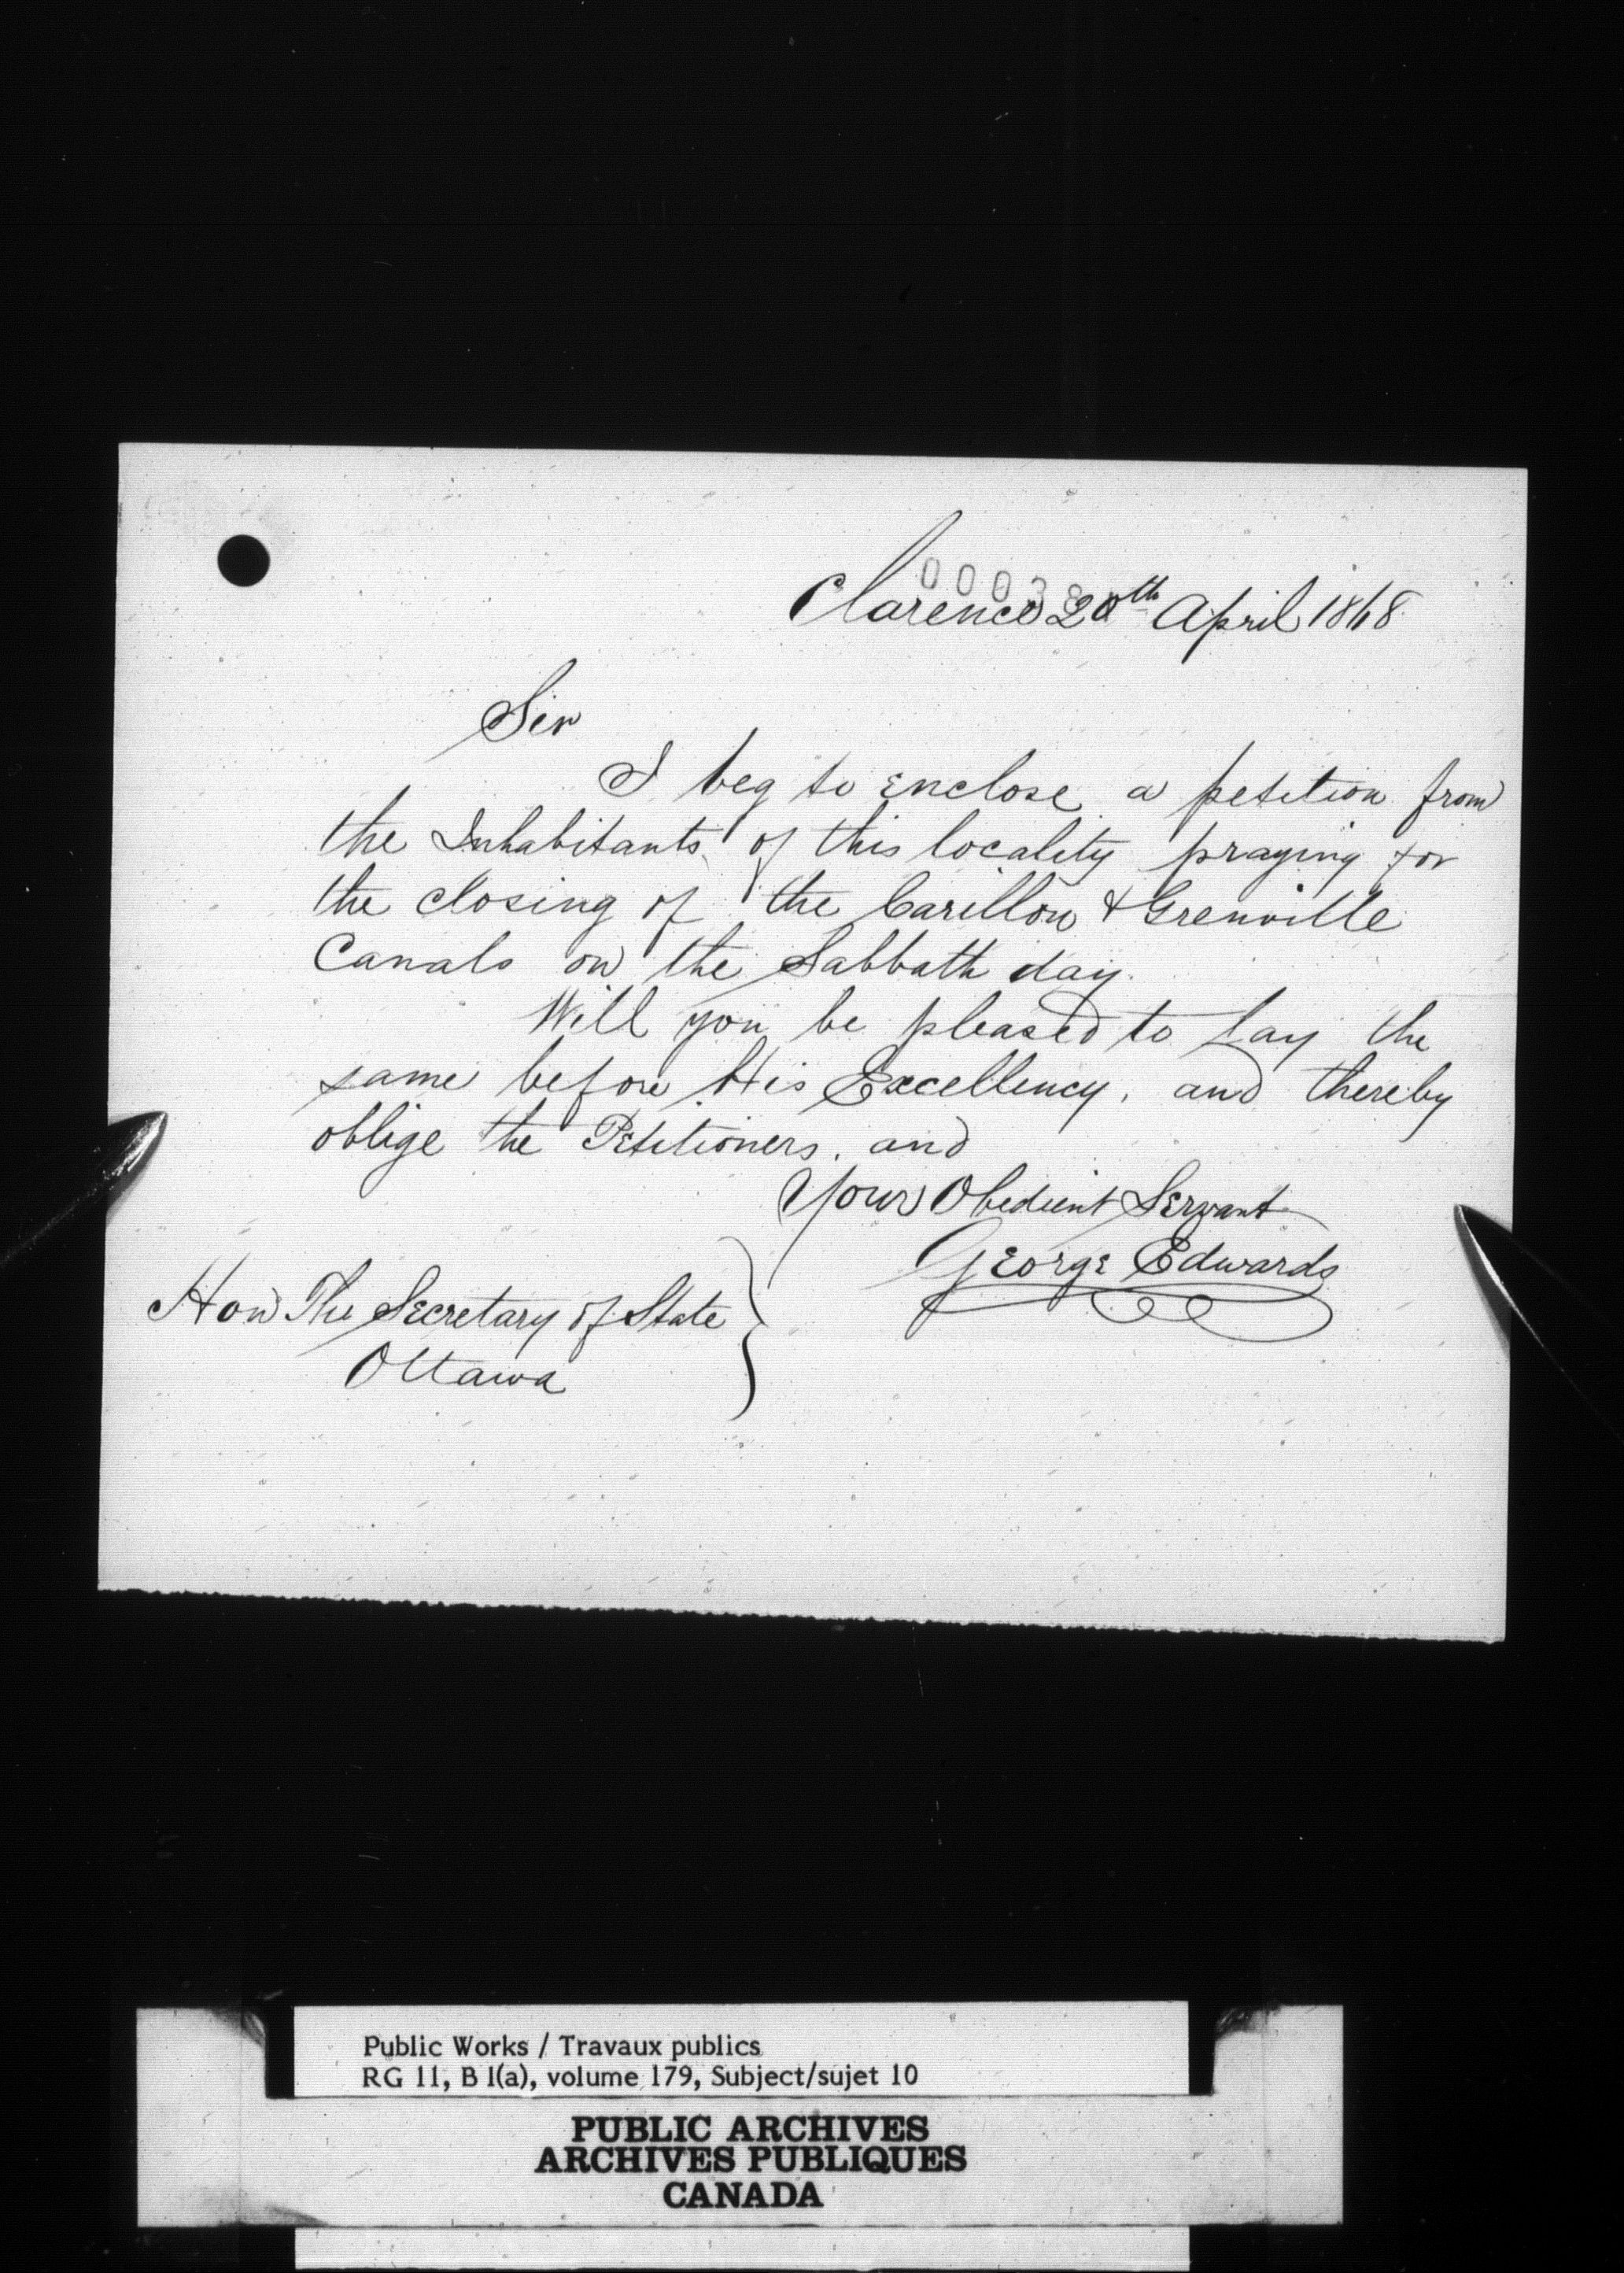 00038
Clarence 20th April 1868
Sir
I beg to enclose a petition from
the Inhabitants of this locality praying for
the closing of the Carillon & Grenville
Canals on the Sabbath day.
Will you be pleased to lay the
same before His Excellency, and thereby
oblige the Petitioners, and
Your Obedient Servant
George Edwards
Hon The Secretary of State
Ottawa
Public Works / Travaux publics
RG 11, B 1(a), volume 179, Subject/sujet 10
PUBLIC ARCHIVES
ARCHIVES PUBLIQUES
CANADA